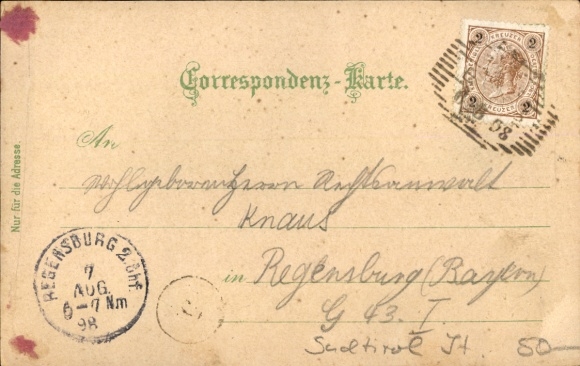 Correspondenz-Karte.
2 KREUZER 2
An
Wohlgeboren Herrn Rechtsanwalt
Knaus
in Regensburg (Bayern)
G 43. I
Südtirol It 50-
Nur für die Adresse.
REGENSBURG 2. Bhf.
7
AUG.
6-7 Nm
98